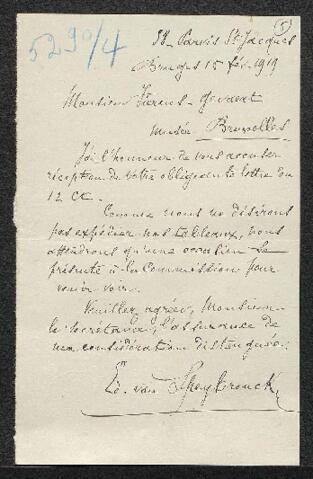 (5)
5290/4
58, Parvis St Jacques
Bruges 15 fév. 1919
Monsieur Fierens-Gevaert
Musée. Bruxelles
J'ai l'honneur de vous accuser
réception de votre obligeante lettre du
12 Ct.
Comme nous ne désirons
pas expédier nos tableaux, nous
attendrons qu'une occasion se
présente à la Commission pour
venir voir.
Veuillez agréer, Monsieur
le Secrétaire, l'assurance de
ma considération distinguée.
Ed. van Speybrouck